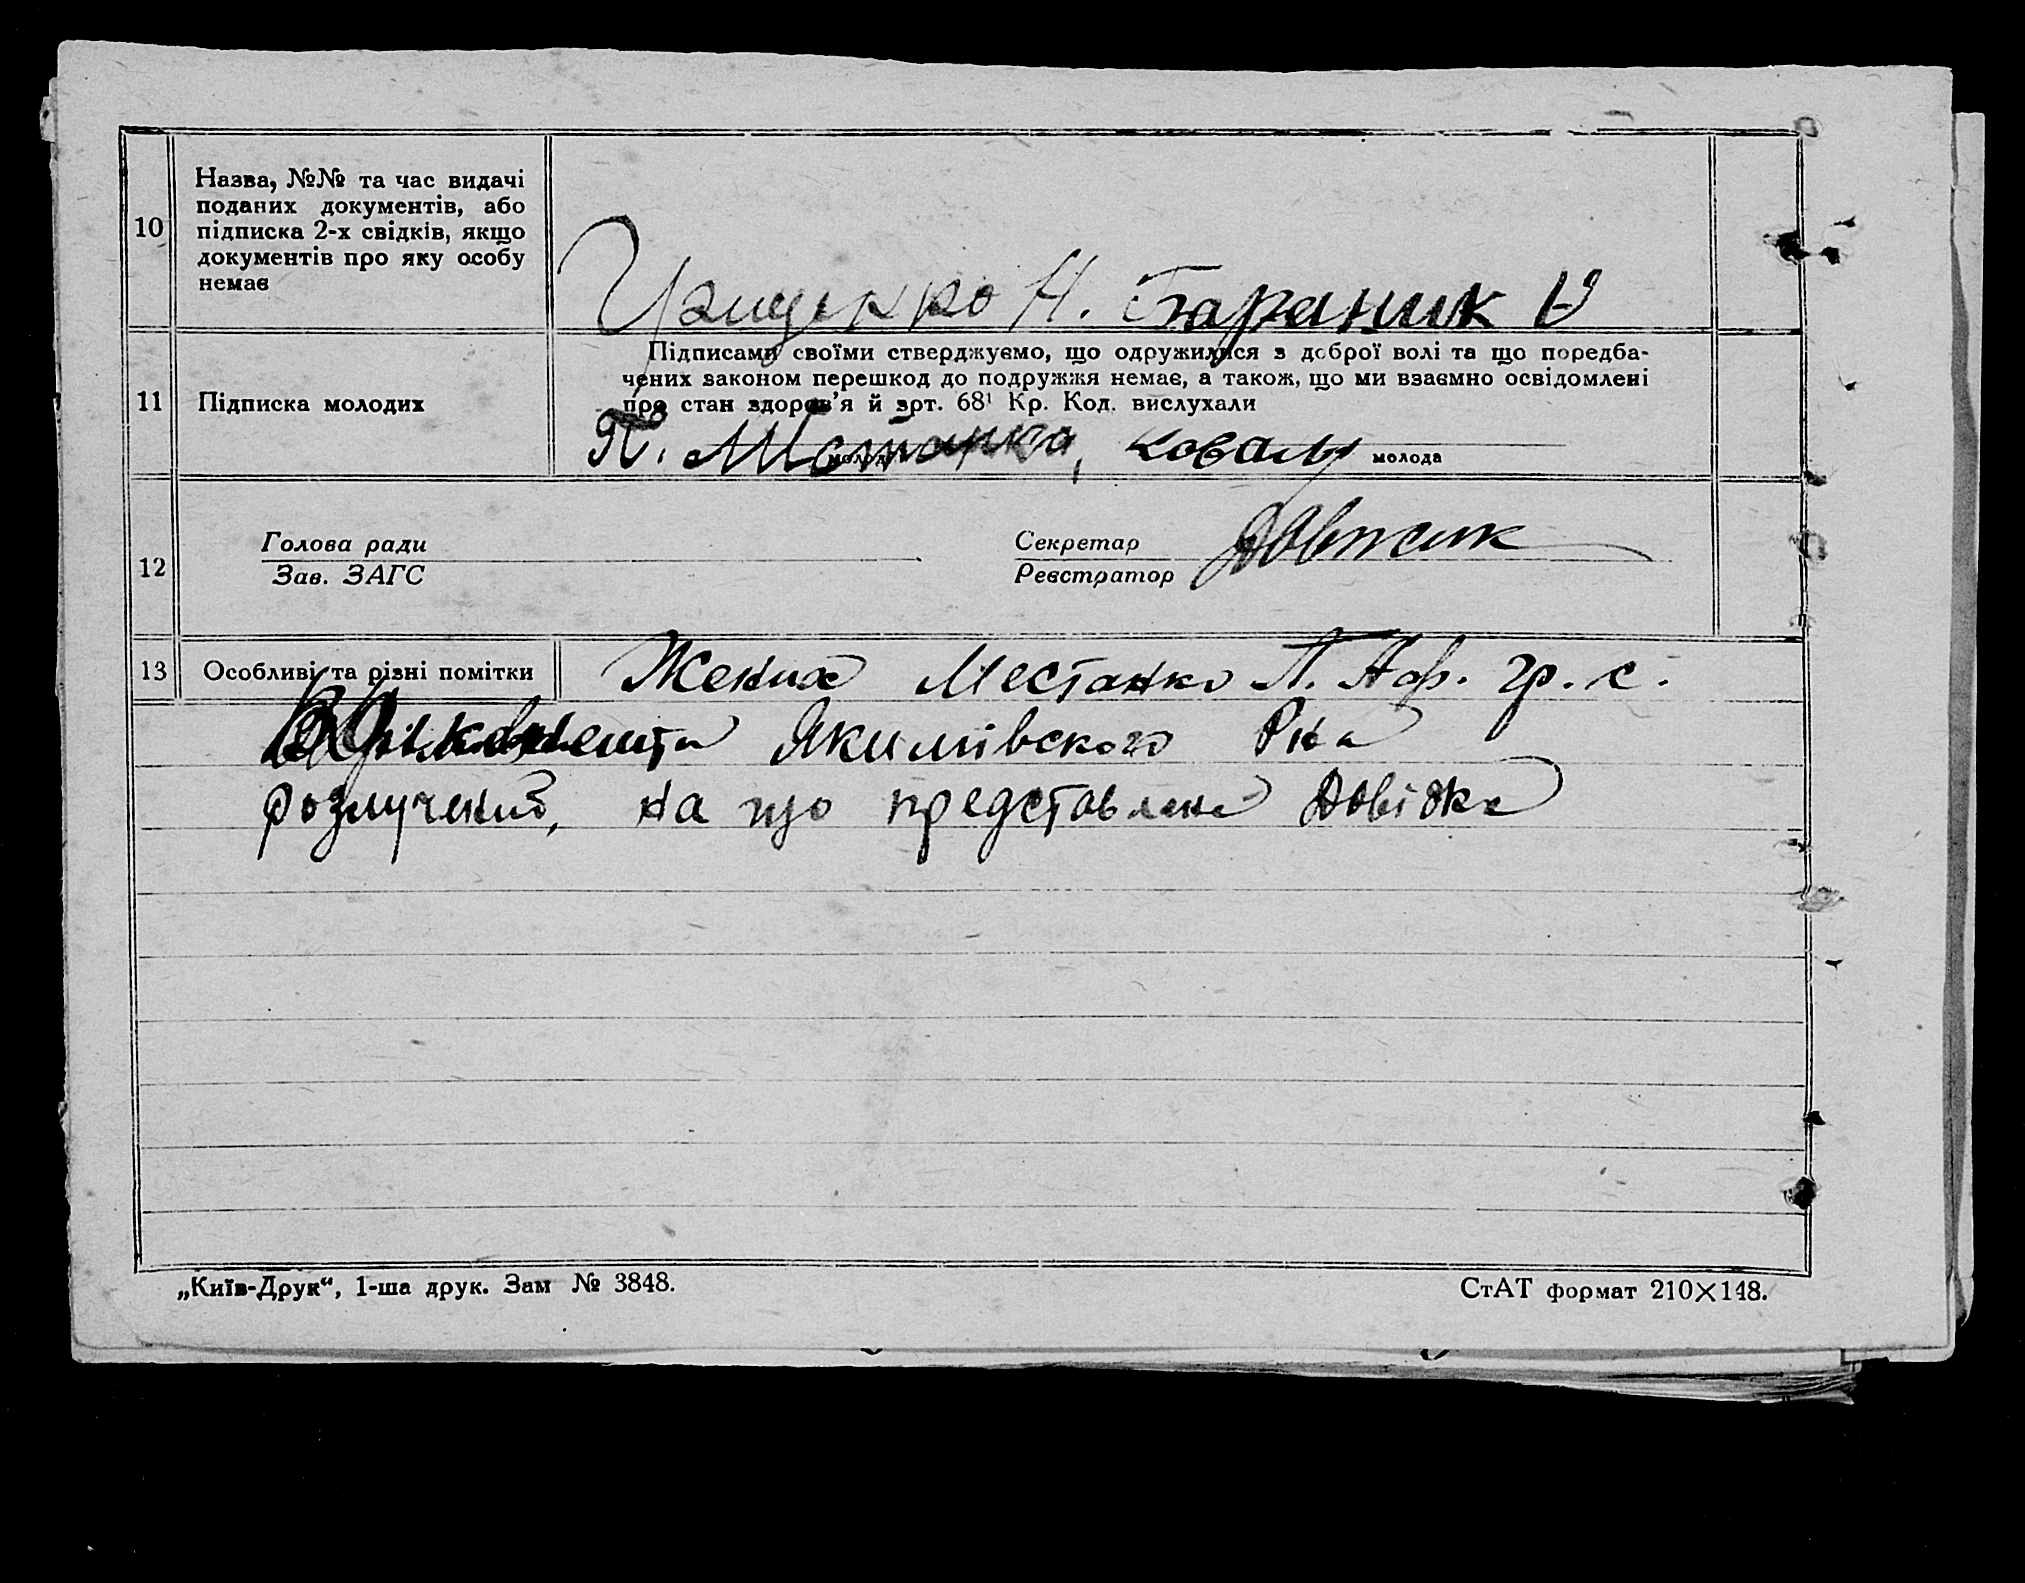 10
Назва, №№ та час видачі
поданих документів, або
підписка 2-х свідків, якщо
документів про яку особу
немає
Н. Бараник
11
Підписка молодих
Підписами своїми стверджуємо, що одружилися з доброї волі та що поредба-
чених законом перешкод до подружжя немає, а також, що ми взаємно освідомлені
про стан здоров'я й врт. 68¹ Кр. Код. вислухали
П. Местанко, Коваль
молод
молода
12
Голова ради
Зав. ЗАГС
Секретар
Реєстратор
Довжик
13
Особливі та різні помітки
Жених Местанко П. Аф. гр. с.
Якимівского Р-на
розлучений, на що представлена Довідка
„Київ-Друк“, 1-ша друк. Зам № 3848.
СтАТ формат 210×148.